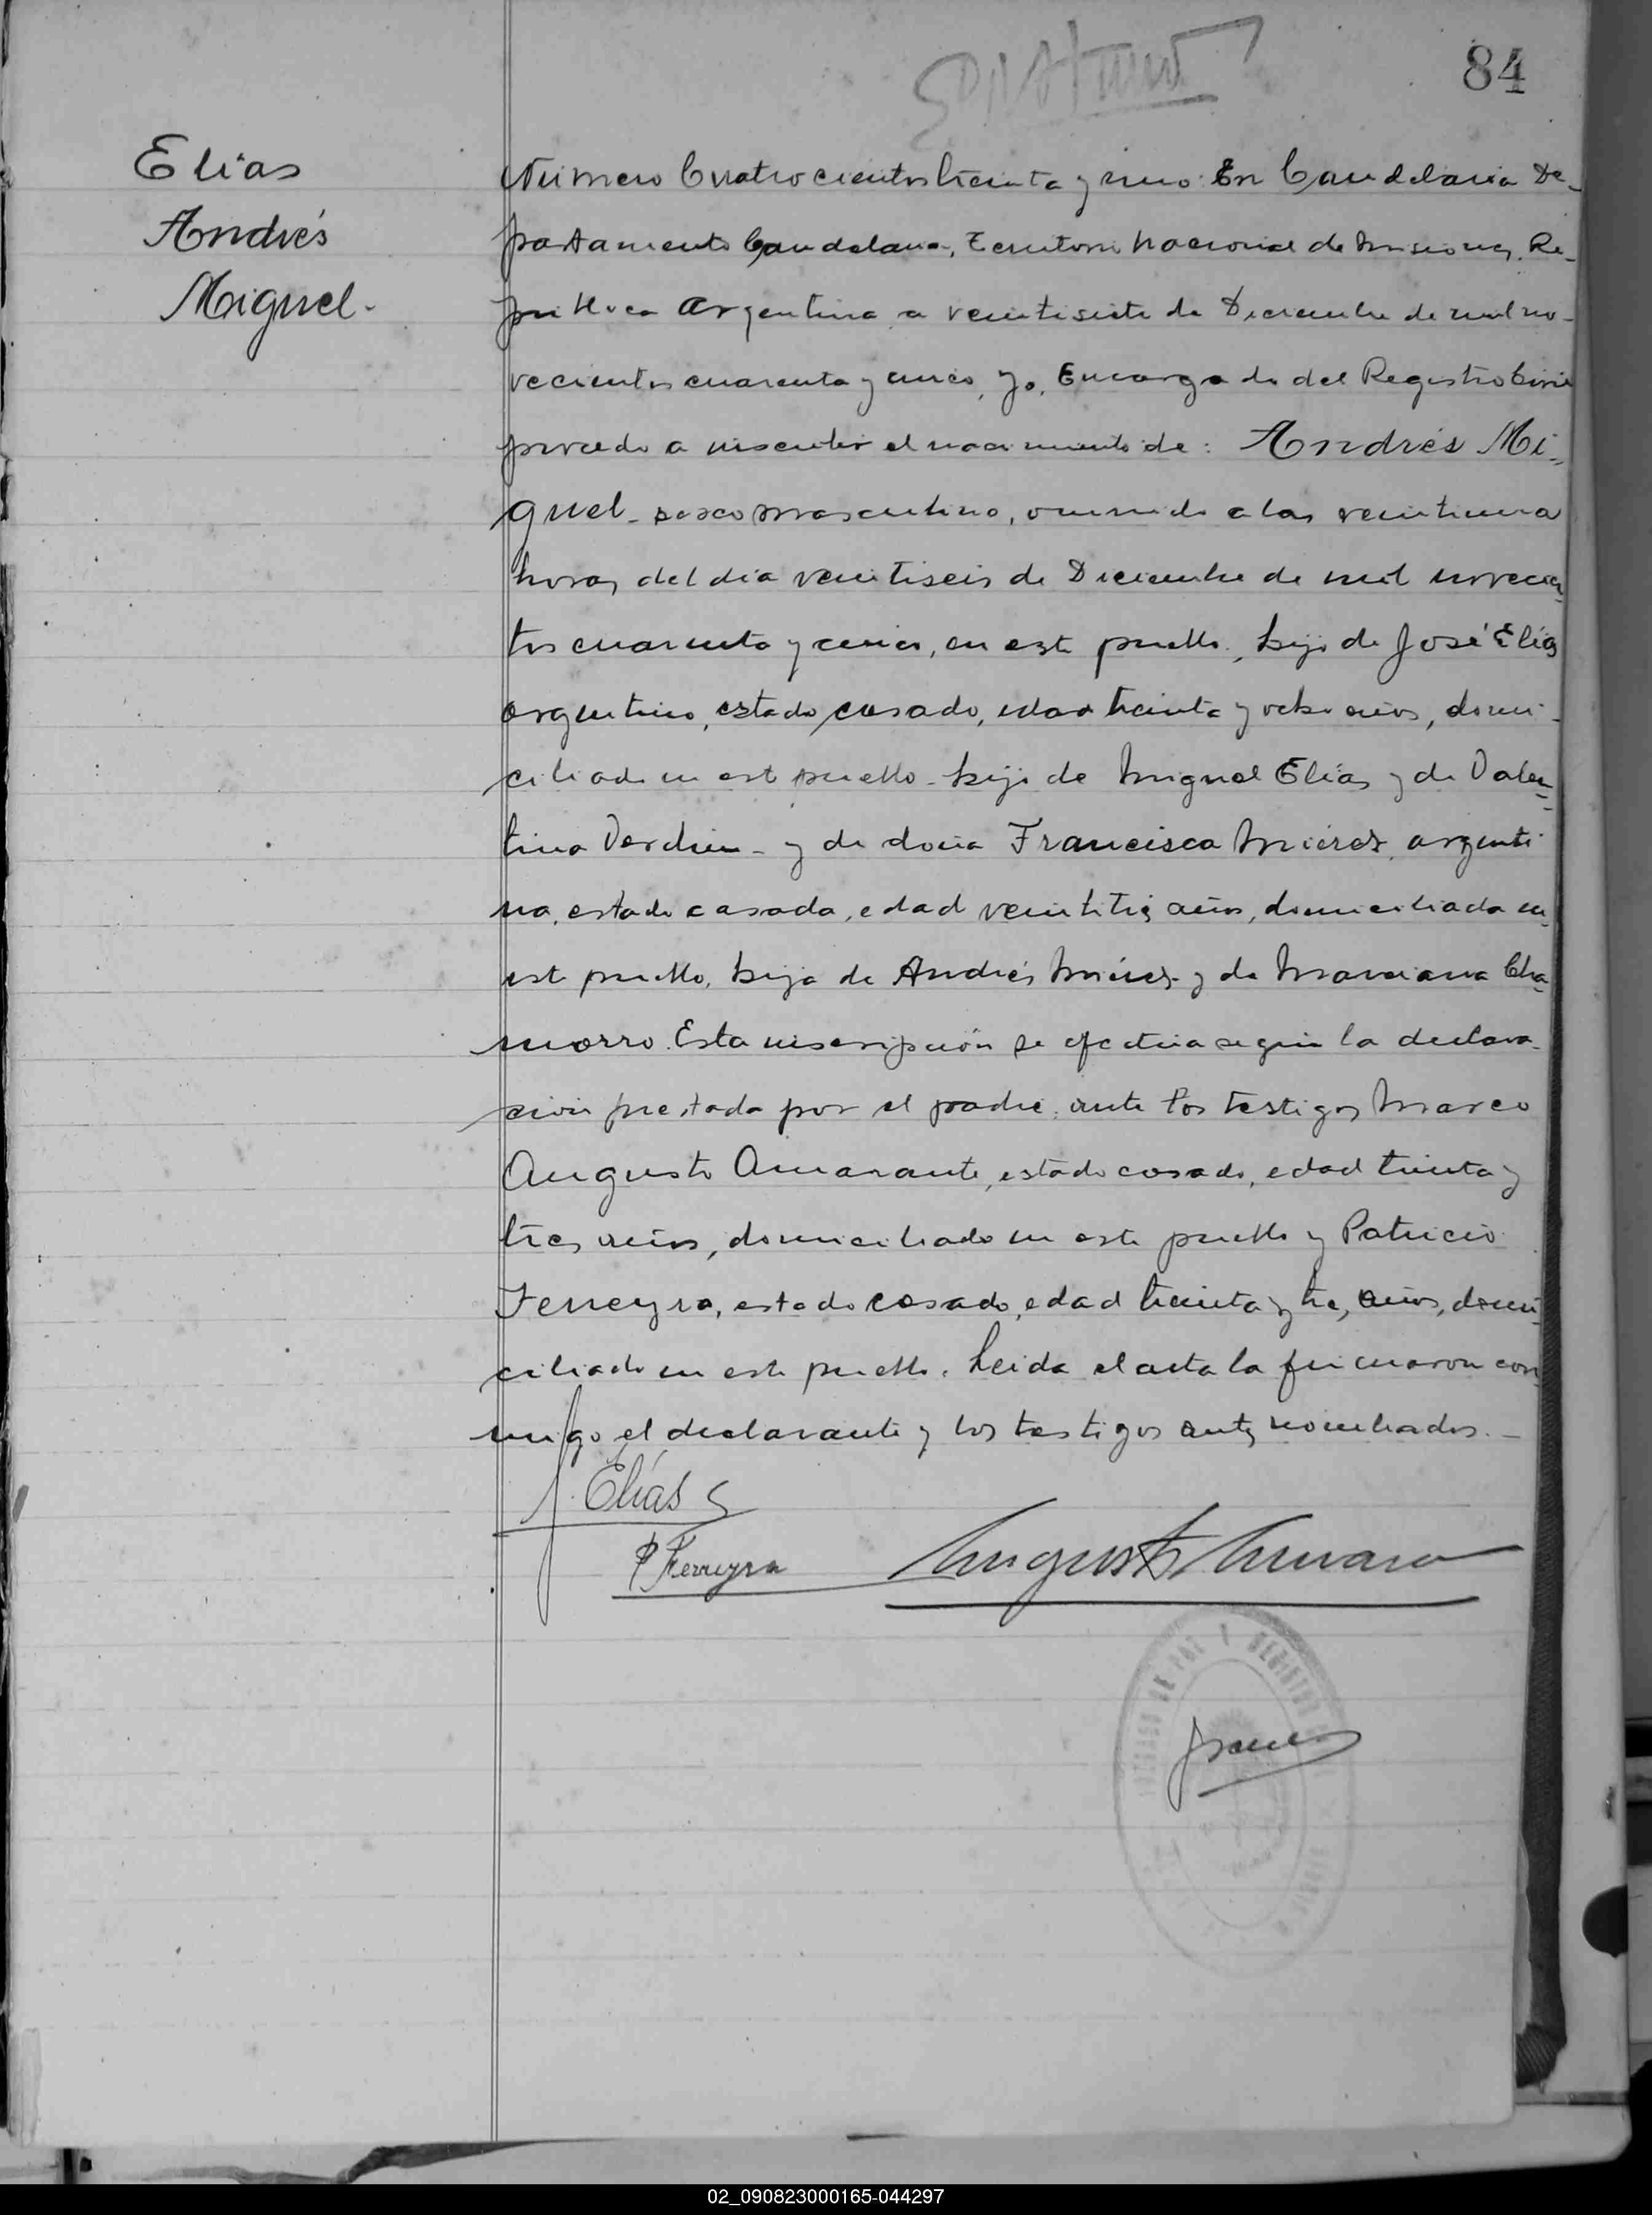 84
Elías
Andrés
Miguel-
Número Cuatrocientos treinta y uno: En Candelaria De-
partamento Candelaria, Territorio Nacional de Misiones, Re-
pública Argentina a veintisiete de Diciembre de mil no-
vecientos cuarenta y cinco, yo, Encargado del Registro Civil
procedo a inscribir el nacimiento de: Andrés Mi-
guel- sexo masculino, ocurrido a las veintiuna
horas del día veintiseis de Diciembre de mil novecien-
tos cuarenta y cinco, en este pueblo, hijo de José Elías
argentino, estado casado, edad treinta y ocho años, domi-
ciliado en este pueblo- hijo de Miguel Elías y de Valen-
tina - y de doña Francisca Miérez, argenti
na, estado casada, edad veintitrés años, domiciliada en
este pueblo, hija de Andrés Miérez y de Marciana Cha-
morro. Esta inscripción se efectúa según la declara-
ción prestada por el padre, ante los testigos Marco
Augusto Amarante, estado casado, edad treinta y
tres años, domiciliado en este pueblo y Patricio
Ferreyra, estado casado, edad treinta y tres años, domi-
ciliado en este pueblo. Leida el acta la firmaron con-
migo el declarante y los testigos antes nombrados.-
J. Elías
P Ferreyra
JUZGADO DE PAZ Y REGISTRO
02_090823000165-044297